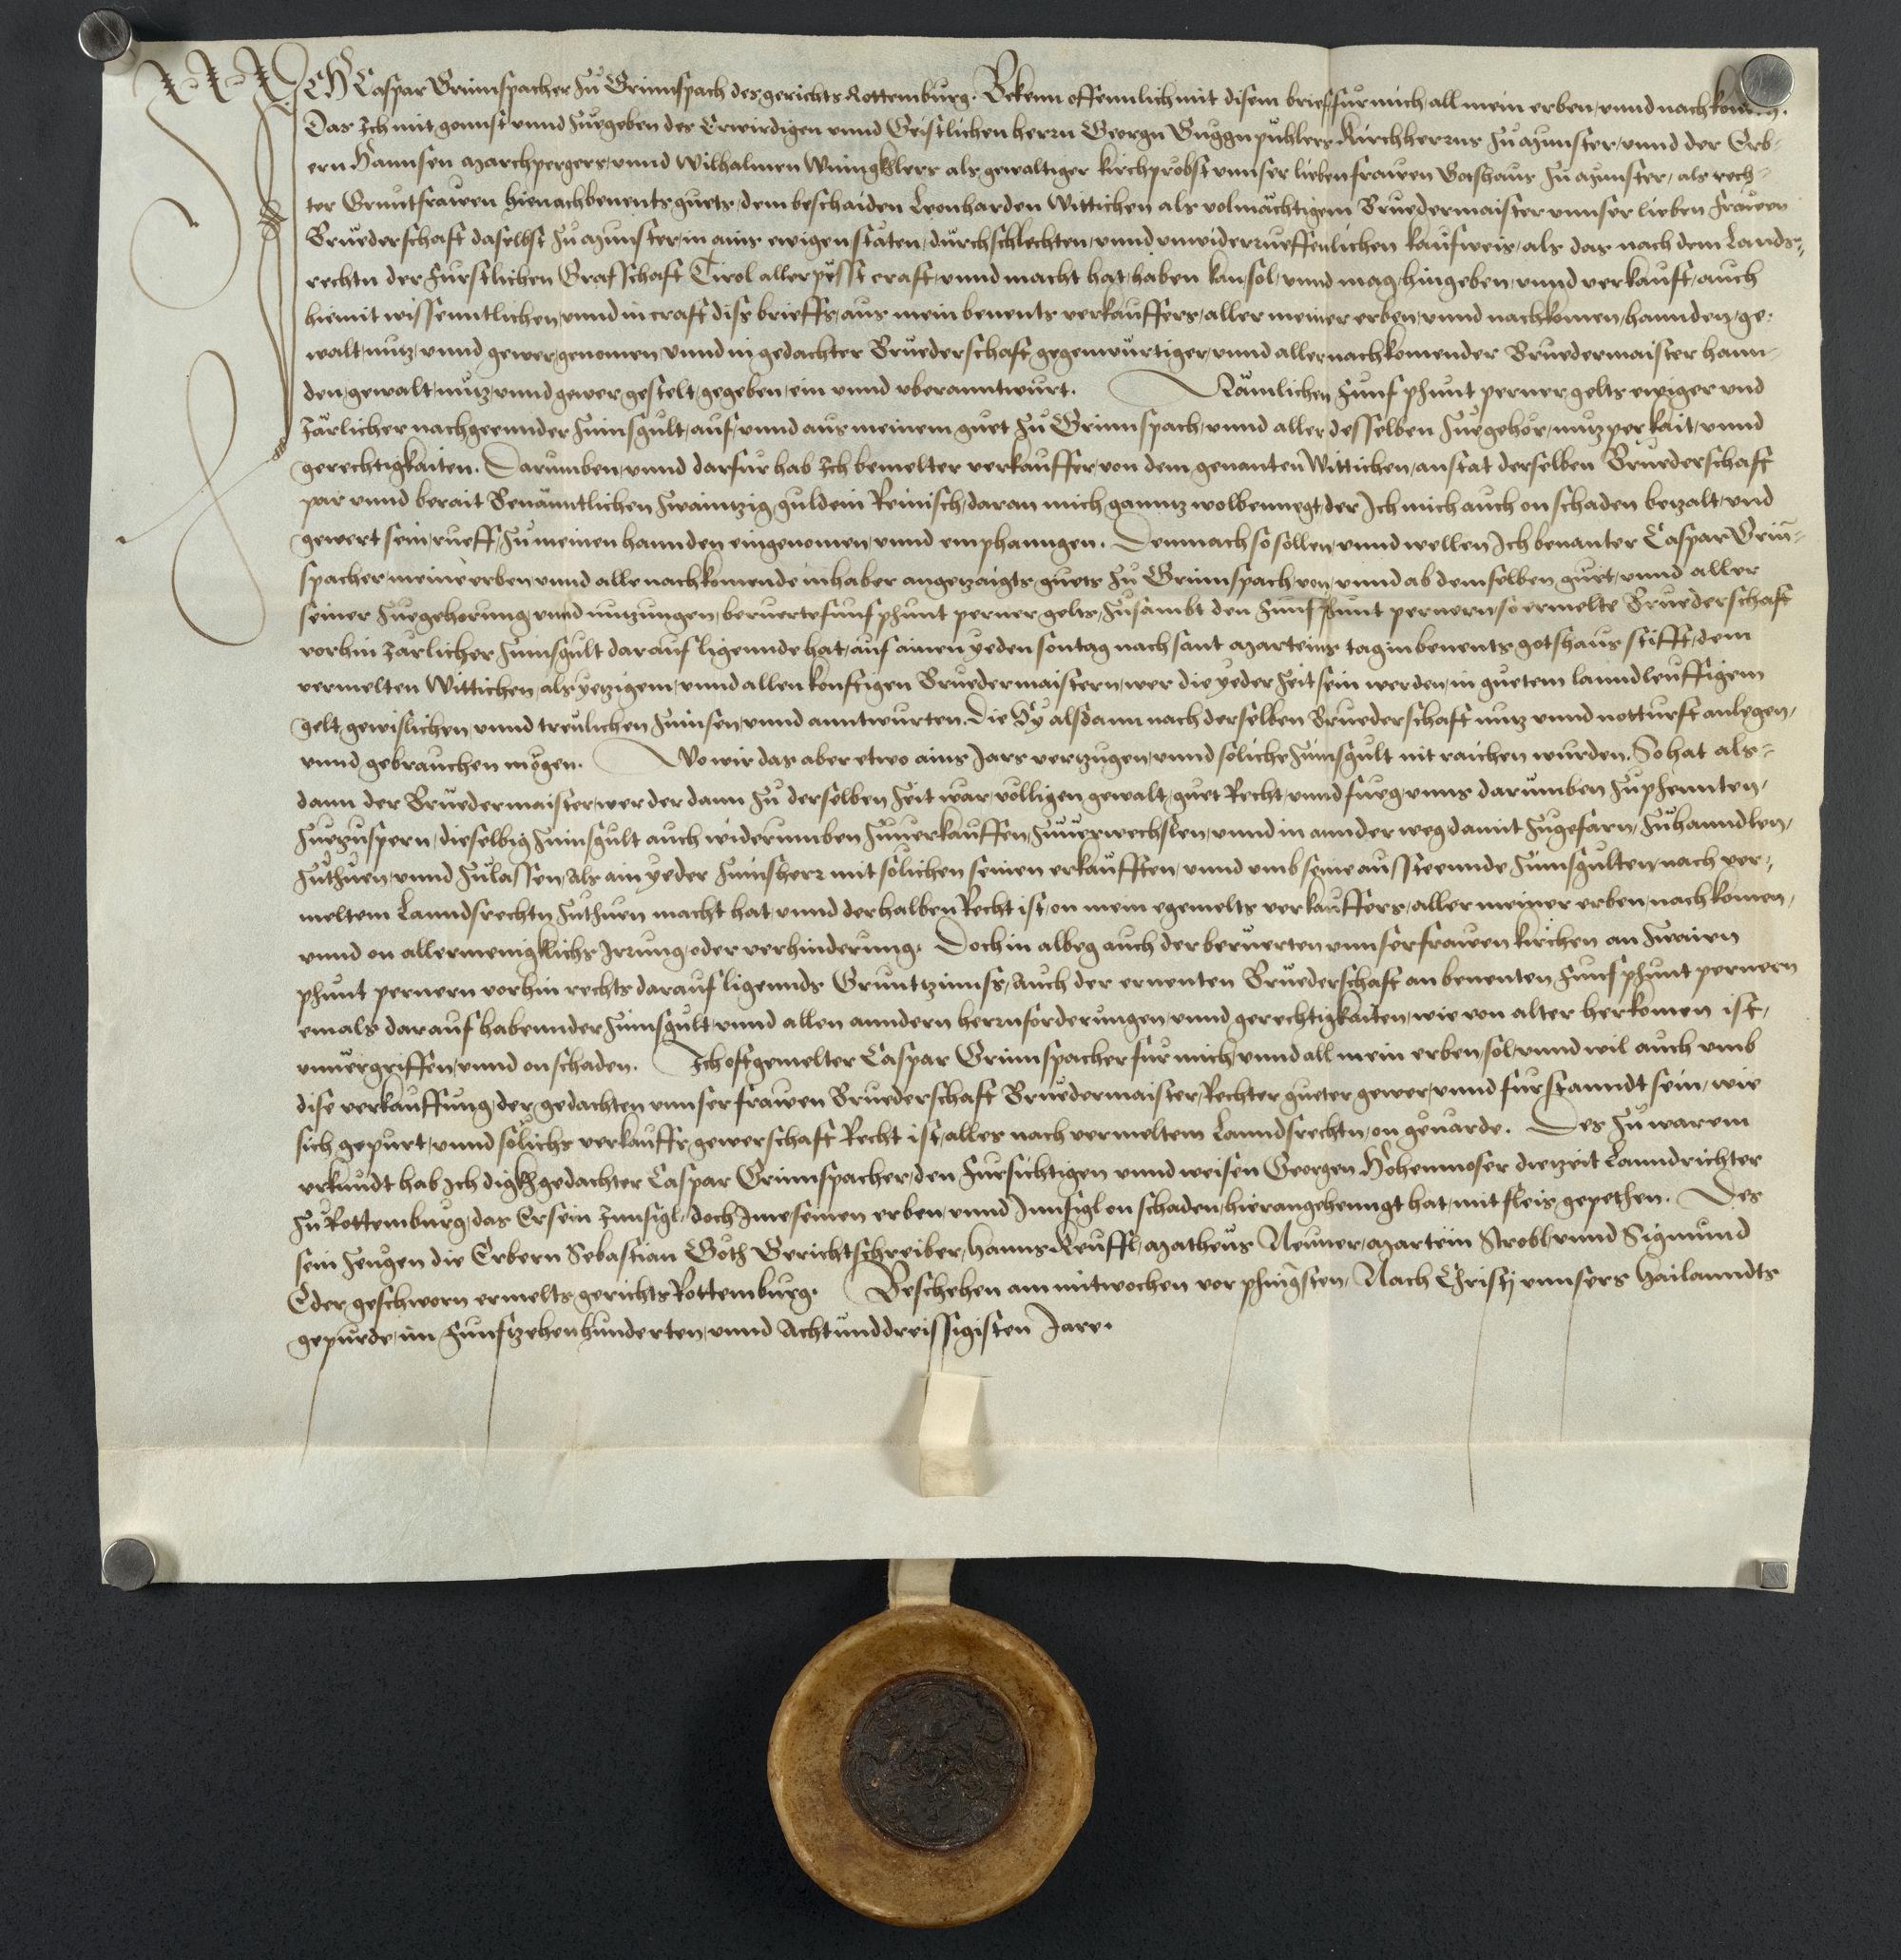 ICH Caspar Grimspacher zu Grimspach des gerichts Rottemburg. Bekenn offennlich mit disem brief fur mich, all mein erben, vnnd nachkomen.
Das Ich mit gonnst vnnd zuegeben des Erwirdigen vnnd Geistlichen herrn Georgn Guggnpühlers Kirchherrns zu Munster, vnnd der Erb-
ern Hannsen Marchpergers, vnnd Wilhalmen als gewaltiger kirchpröbst vnnser lieben frawen Gotshaus zu Munster, als rech-
ter Gruntfrawen hienachbenents guets, dem beschaiden Leonharden Wittichen als volmächtigem Bruedermaister vnnser lieben Frawen
Bruederschaft daselbst zu Munster, in ains ewigen stäten, durchschlechten, vnnd vnwiderrueffenlichen kaufsweis, als das nach dem Lands-
rechtn der Furstlichen Grafschaft Tirol aller pësst craft, vnnd macht hat, haben kan sol, vnnd mag, hingeben, vnnd verkauft, auch
hiemit wissenntlichen, vnnd in craft diss brieffs, aus mein benents verkauffers, aller meiner erben, vnnd nachkomen, hannden, ge-
walt, nutz, vnnd gewer, genomen, vnnd in gedachter Bruederschaft, gegenwurtiger, vnnd aller nachkomender Bruedermaister hann-
den, gewalt, nutz, vnnd gewer gestelt, gegeben, ein vnnd vberanntwurt. Nämlichen Funf phunt perner gelts ewiger vnd
Järlicher nachgeennder Zinnsgult, auf, vnnd aus meinem guet zu Grimspach, vnnd aller desselben zuegehör, nutzperkait, vnnd
gerechtigkaiten. Darumben, vnnd darfur hab Ich bemelter verkauffer, von dem genanten Wittichen, anstat derselben Bruederschaft
par vnnd berait Benänntlichen zwaintzig guldein Reinisch, daran mich ganntz wolbenuegt, der Ich mich auch on schaden bezalt, vnd
gewert sein, rueff, zu meinen hannden eingenomen, vnnd emphanngen. Demnach so sollen, vnnd wellen Ich benanter Caspar Grim-
spacher, meine erben vnnd alle nachkomende inhaber angetzaigts guets zu Grimspach von, vnnd ab demselben guet, vnnd aller
seiner zuegehorung, vnnd nutzungen, beruerte funf phunt perner gelts, zusambt den Funf phunt pernern so ermelte Bruederschaft
vorhin Jarlicher Zinnsgult darauf ligennde hat, auf ainen yeden sontag nach sant Marteins tag in benents gotshaus stifft, dem
vermelten Wittichen als yetzigem, vnnd allen konftigen Bruedermaistern, wer die yeder zeit sein werden, in guetem lanndleuffigem
gelt, gewislichen, vnnd treulichen zinnsen, vnnd anntwurten. Die Sy alsdann nach derselben Bruederschaft nutz vnnd notturft anlegen,
vnnd gebrauchen mögen. Wo wir das aber etwo ains Jars vertzugen, vnnd soliche Zinnsgult nit raichen wurden. So hat als-
dann der Bruedermaister, wer der dann zu derselben zeit war, völligen gewalt, guet Recht, vnnd fueg, vnns darumben zuphennten,
dieselbig Zinnsgult auch widerumben zuuerkauffen, zuuerwechslen, vnnd in annder weg damit zugefarn, zuhanndlen,
zuthuen, vnnd zulassen, als ain yeder Zinnsherr mit solichen seinen erkaufften, vnnd vmb seine aussteennde Zinnsgulten, nach ver-
meltem Lanndsrechtn zuthuen macht hat, vnnd derhalben Recht ist, on mein egemelts verkauffers, aller meiner erben, nachkomen,
vnnd on allermenigklichs Irrung, oder verhinderung. Doch in albeg auch der beruerten vnnser frawen kirchen an zwaien
phunt pernern vorhin rechts darauf ligennds Grunttzinnss, Auch der ernenten Bruederschaft an benenten Funf phunt pernern
emals darauf habennder Zinnsgult, vnnd allen anndern herrnforderungen, vnnd gerechtigkaiten, wie von alter herkomen ist,
vnuergriffen, vnnd on schaden. Ich oftgemelter Caspar Grimspacher fur mich, vnnd all mein erben, sol, vnnd wil auch vmb
dise verkauffung, der gedachten vnnser frawen Bruederschaft Bruedermaister, Rechter gueter gewer, vnnd furstanndt sein, wie
sich gepurt, vnnd solichs verkauffs, gewerschaft Recht ist, alles nach vermeltem Lanndsrechtn, on geuärde. Des zu warem
vrkundt hab Ich digkhgedachter Caspar Grimspacher, den Fursichtigen vnnd weisen Georgen Höhenmoser dietzeit Lanndrichter
zu Rottemburg, das Er sein Innsigl, doch Ime seinen erben, vnnd Innsigl on schaden, hierangehenngt hat, mit fleis gepethen. Des
sein zeugen die Erbern Sebastian Göth Gerichtschreiber, Hanns Reuffl, Matheus Neuner, Martein Strobl, vnnd Sigmund
Eder, geschworn ermelts gerichts Rottemburg. Beschehen am mitwochen vor phingsten, Nach Christj vnnsers hailanndts
gepurde, im Funftzehenhunderten, vnnd Achtunddreissigisten Jare.